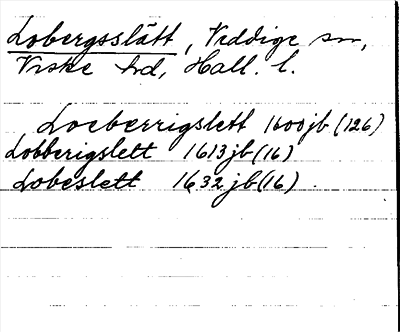 Lobergsslätt, Veddige sn,
Viske hd, Hall. l.
Loeberrigslett 1600 jb (126)
Lobberigslett 1613 jb (16)
Lobeslett 1632 jb (16).